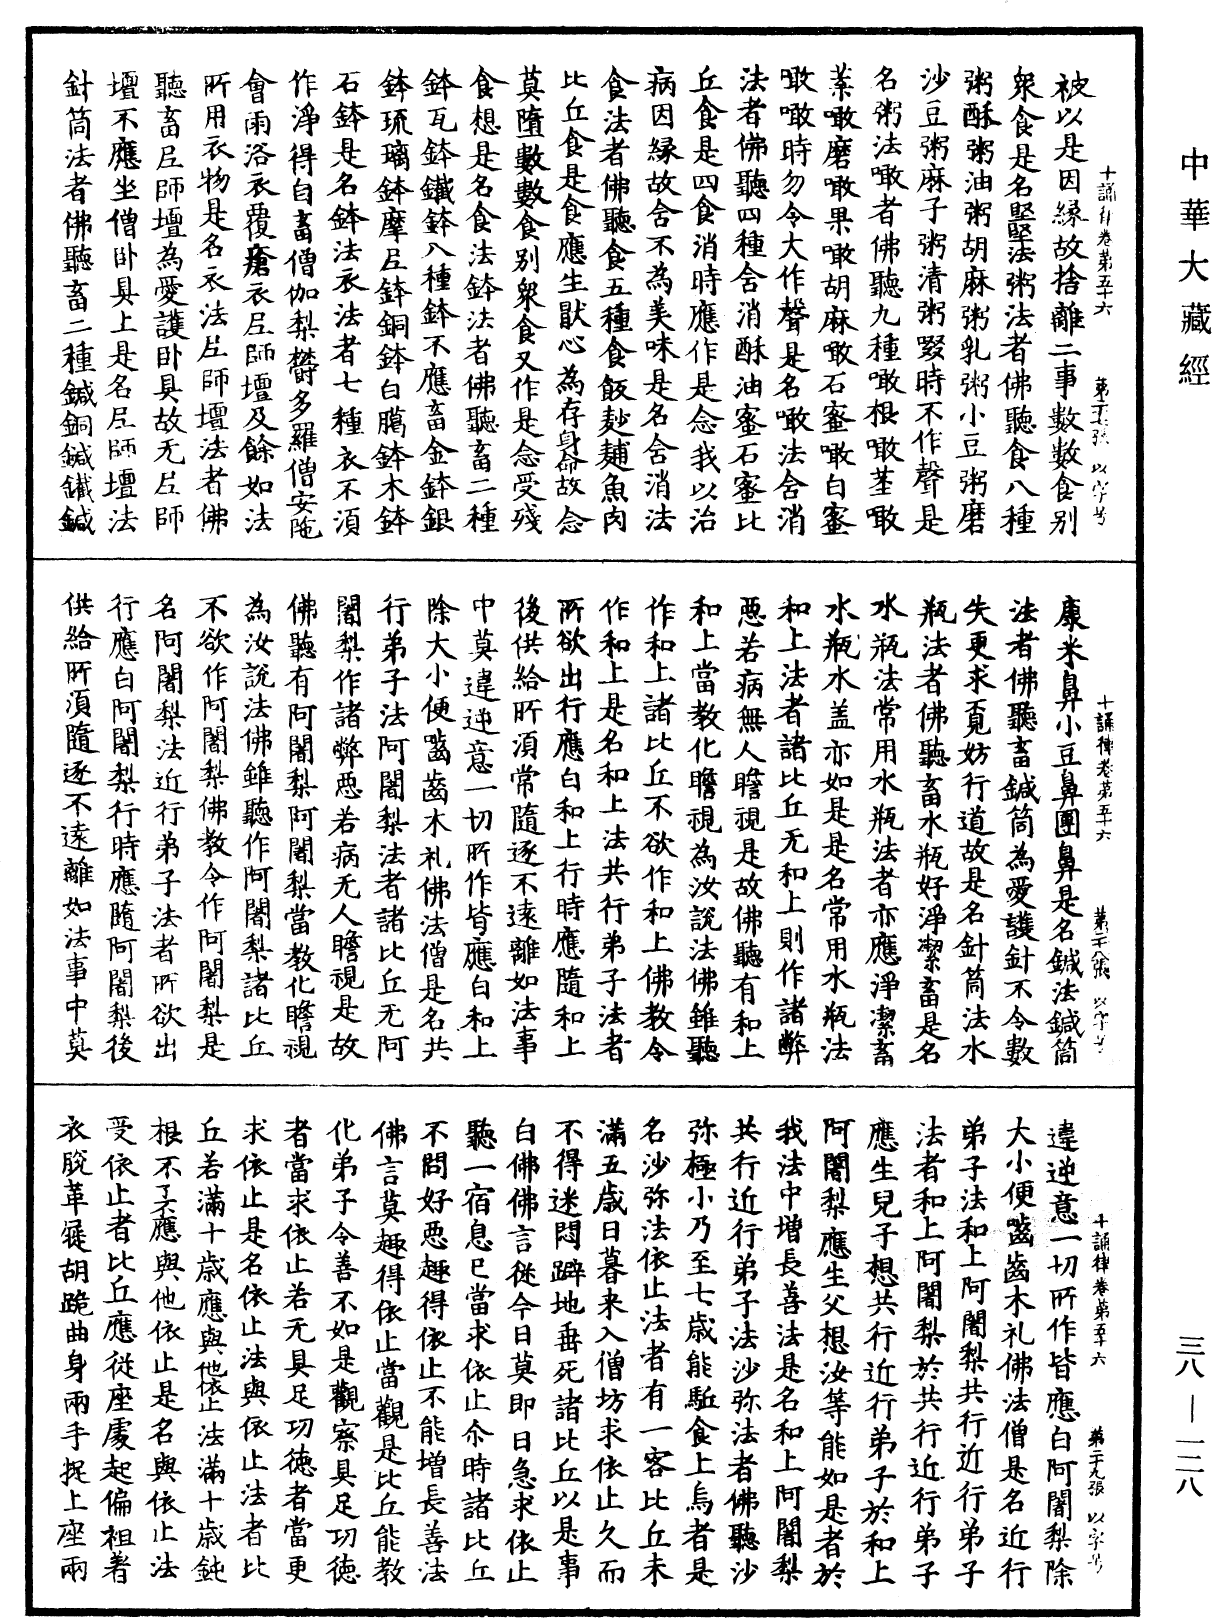 中華大藏經
十誦律卷第五十六 第二十七張 以字号
被以是因緣故捨離二事數數食别
衆食是名堅法粥法者佛聽食八種
粥酥粥油粥胡麻粥乳粥小豆粥磨
沙豆粥麻子粥清粥啜時不作聲是
名粥法噉者佛聽九種噉根噉莖噉
葉噉磨噉果噉胡麻噉石蜜噉白蜜
噉噉時勿令大作聲是名噉法舍消
法者佛聽四種舍消酥油蜜石蜜比
丘食是四食消時應作是念我以治
病因緣故舍不為美味是名舍消法
食法者佛聽食五種食飯麨糒魚肉
比丘食是食應生猒心為存身命故念
莫墮數數食别衆食又作是念受殘
食想是名食法鉢法者佛聽畜二種
鉢瓦鉢鐵鉢八種鉢不應畜金鉢銀
鉢琉璃鉢摩𡰱鉢銅鉢白鑞鉢木鉢
石鉢是名鉢法衣法者七種衣不須
作淨得自畜僧伽梨欝多羅僧安陁
會雨浴衣覆瘡衣𡰱師壇及餘如法
所用衣物是名衣法𡰱師壇法者佛
聽畜𡰱師壇為愛護卧具故无𡰱師
壇不應坐僧卧具上是名𡰱師壇法
針筒法者佛聽畜二種鍼銅鍼鐵鍼
十誦律卷第五十六 第二十八張 以字号
康米鼻小豆鼻團鼻是名鍼法鍼筒
法者佛聽畜鍼筒為愛護針不令數
失更求覓妨行道故是名針筒法水
瓶法者佛聽畜水瓶好淨潔畜是名
水瓶法常用水瓶法者亦應淨潔畜
水瓶水盖亦如是是名常用水瓶法
和上法者諸比丘无和上則作諸弊
惡若病無人瞻視是故佛聽有和上
和上當教化瞻視為汝說法佛雖聽
作和上諸比丘不欲作和上佛教令
作和上是名和上法共行弟子法者
所欲出行應白和上行時應隨和上
後供給所須常隨逐不遠離如法事
中莫違逆意一切所作皆應白和上
除大小便嚙齒木礼佛法僧是名共
行弟子法阿闍梨法者諸比丘无阿
闍梨作諸弊惡若病无人瞻視是故
佛聽有阿闍梨阿闍梨當教化瞻視
為汝說法佛雖聽作阿闍梨諸比丘
不欲作阿闍梨佛教令作阿闍梨是
名阿闍梨法近行弟子法者所欲出
行應白阿闍梨行時應隨阿闍梨後
供給所須隨逐不遠離如法事中莫
十誦律卷第五十六 第二十九張 以字号
違逆意一切所作皆應白阿闍梨除
大小便嚙齒木礼佛法僧是名近行
弟子法和上阿闍梨共行近行弟子
法者和上阿闍梨於共行近行弟子
應生兒子想共行近行弟子於和上
阿闍梨應生父想汝等能如是者於
我法中增長善法是名和上阿闍梨
共行近行弟子法沙弥法者佛聽沙
弥極小乃至七歲能駈食上烏者是
名沙弥法依止法者有一客比丘未
滿五歲日暮来入僧坊求依止久而
不得迷悶躃地垂死諸比丘以是事
白佛佛言從今日莫即日急求依止
聽一宿息已當求依止尒時諸比丘
不問好惡趣得依止不能增長善法
佛言莫趣得依止當觀是比丘能教
化弟子令善不如是觀察具足功徳
者當求依止若无具足功徳者當更
求依止是名依止法與依止法者比
丘若滿十歲應與他依止法滿十歲鈍
根不了不應與他依止是名與依止法
受依止者比丘應從座處起偏袒著
衣脫革屣胡跪曲身兩手捉上座兩
三八—一二八